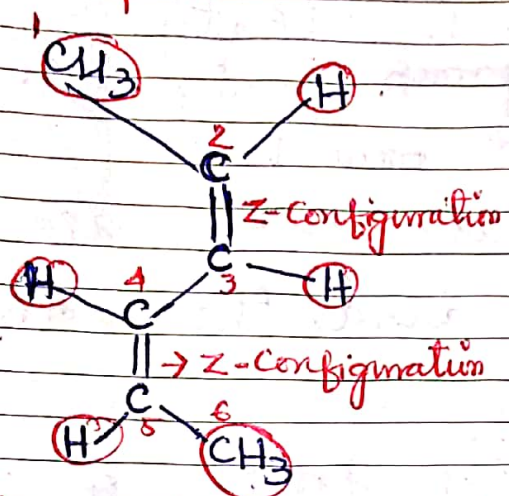 1
CH3
H
2
C
Z-Configuration
C
3
H
H
4
C
→ Z-Configuration
C
5
H
6
CH3